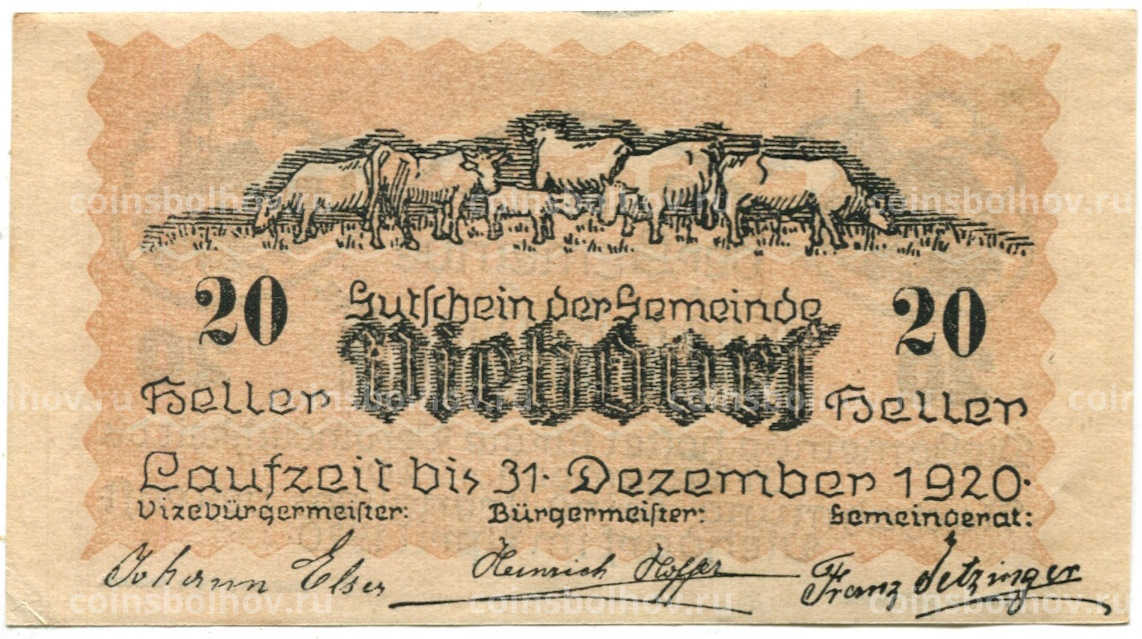 20 Gutschein der Gemeinde 20
Heller Viehdorf Heller
Laufzeit bis 31. Dezember 1920.
Vizebürgermeister: Bürgermeister: Gemeinderat:
Johann Elser Heinrich Hoffer Franz Jetzinger
coinsbolhov.ru